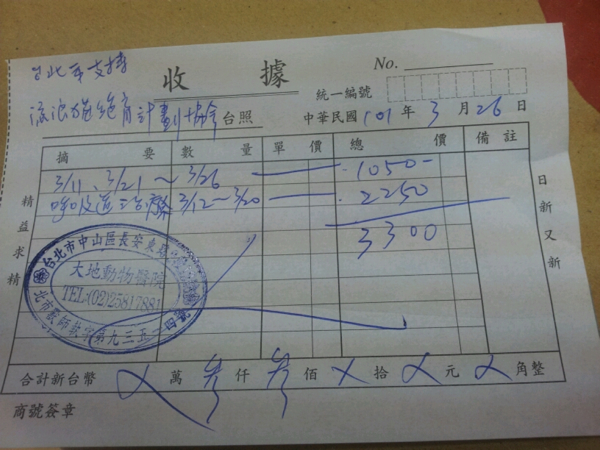 台北市支持
收據
No.
統一編號
流浪貓絕育計劃協會台照
中華民國101年3月26日
摘要 數量 單價 總價 備註
3/11、3/21～3/26 1050-
呼吸道治療 3/12～3/20 2250
3300
台北市中山區長安東路
大地動物醫院
TEL:(02)25817881
第九三五
精益求精
日新又新
合計新台幣 ㄨ 萬 參 仟 參 佰 ㄨ 拾 ㄨ 元 ㄨ 角整
商號簽章